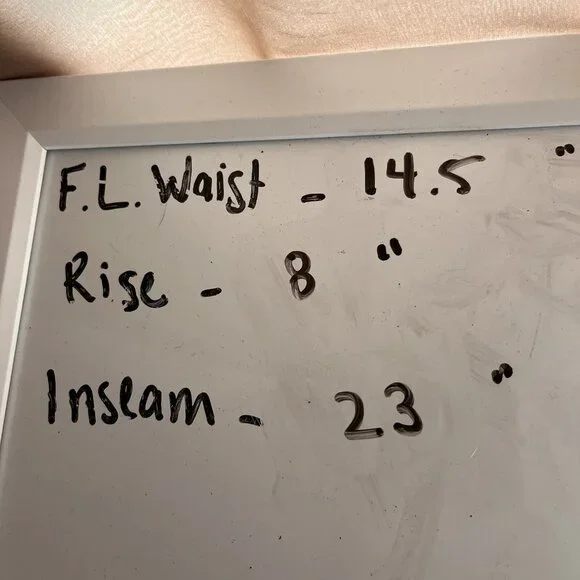 F.L. Waist - 14.5 "
Rise - 8 "
Inseam - 23 "